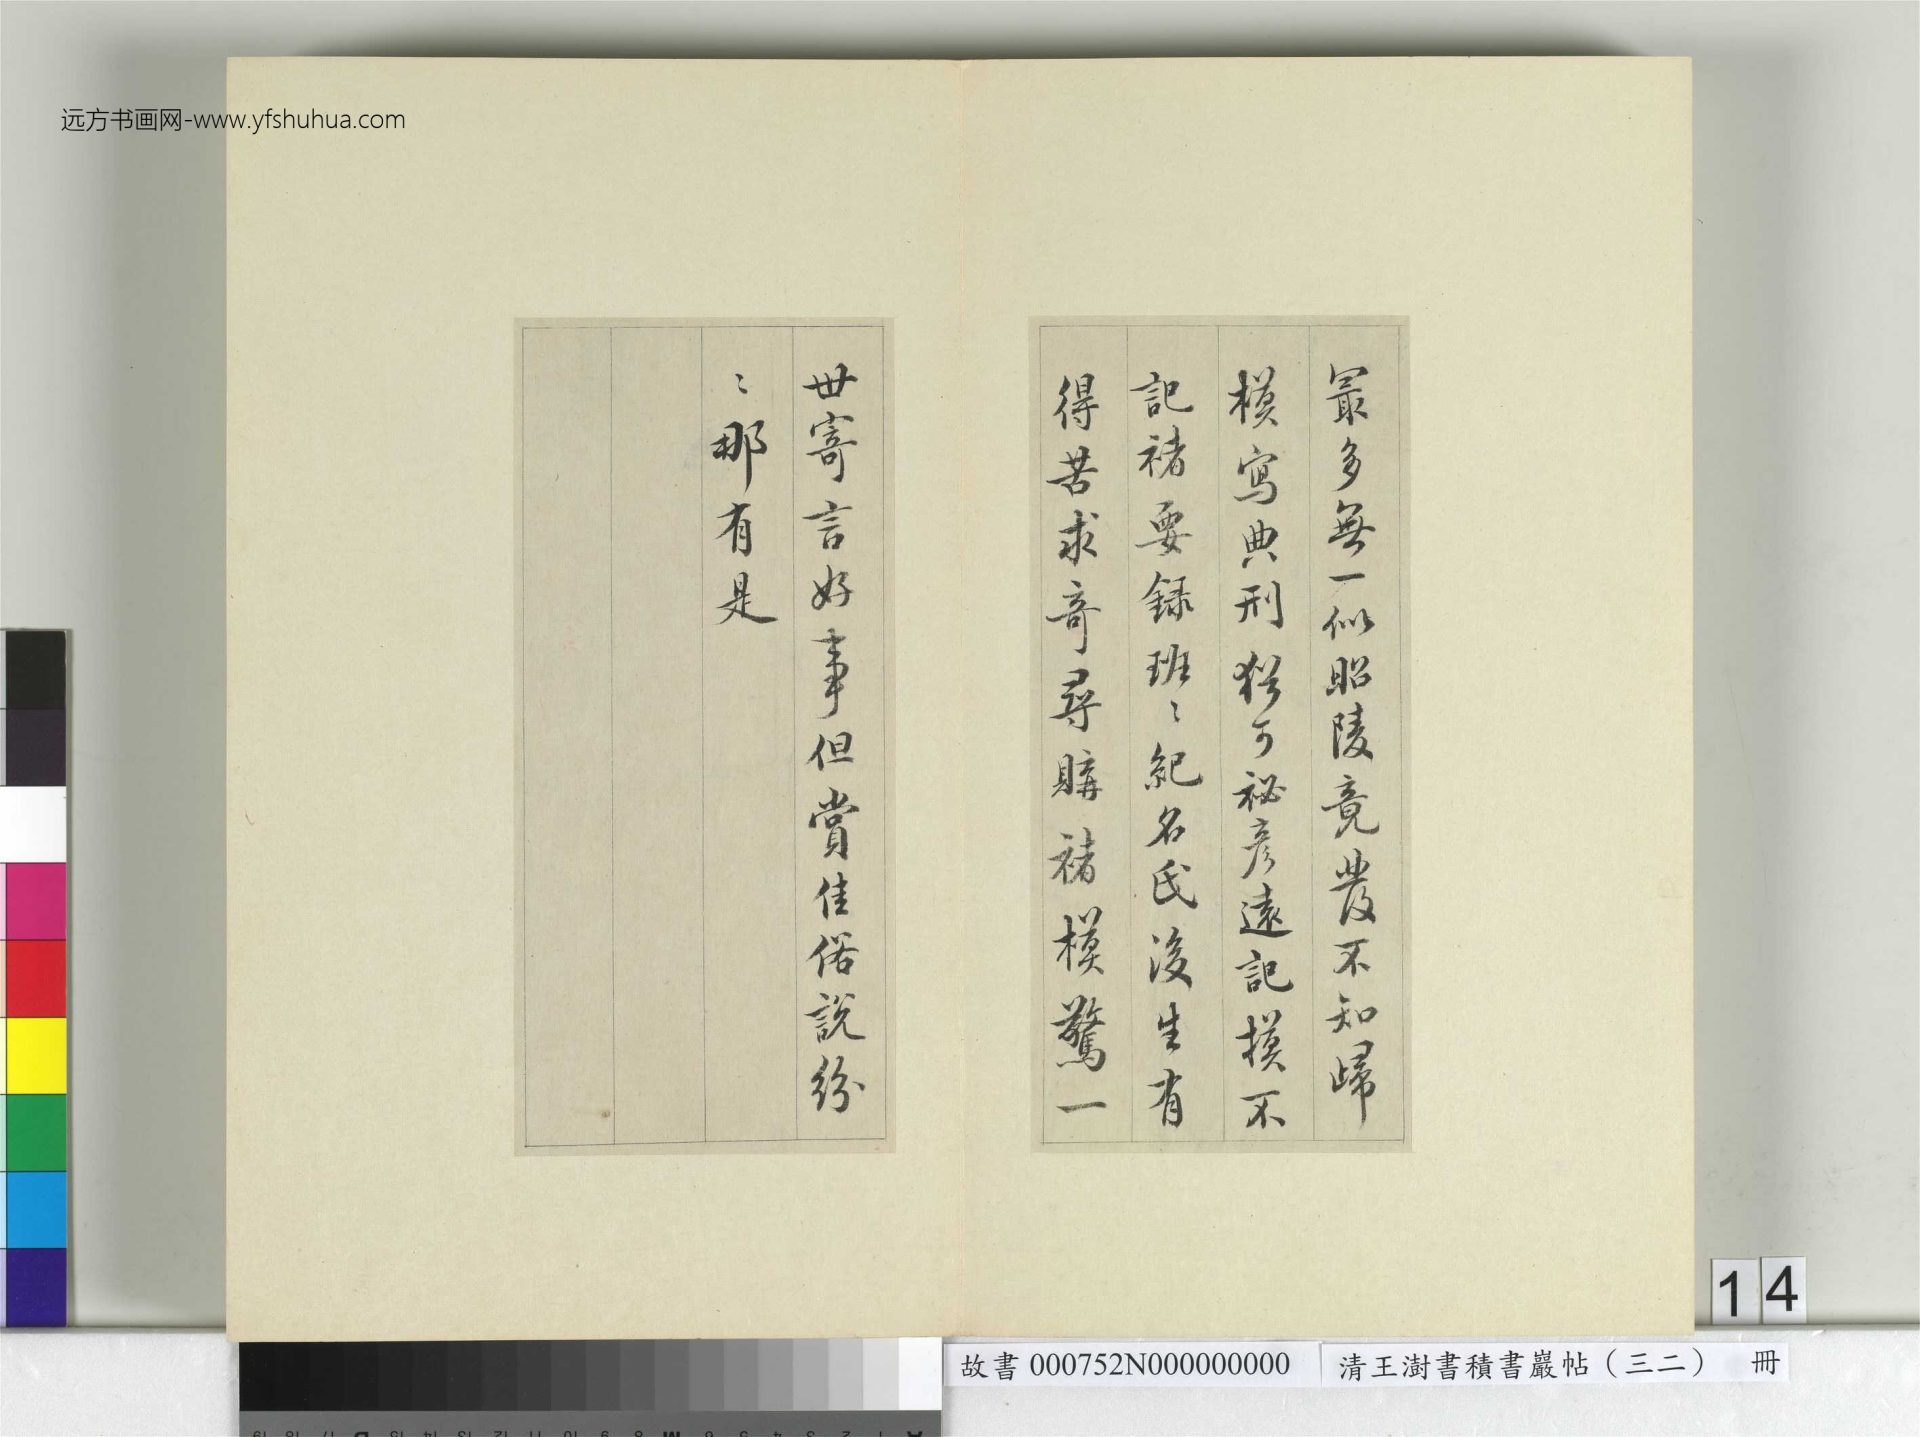 远方书画网-www.yfshuhua.com
冣多無一似昭陵竟發不知歸
模寫典刑猶可祕彥遠記模不
記褚要録班〻紀名氏後生有
得苦求奇尋購褚模驚一
世寄言好事但賞佳俗說紛
〻那有是
14
故書 000752N000000000
清王澍書積書巖帖（三二） 冊